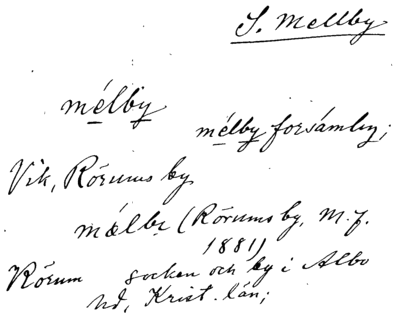 S. Mellby
mélby
mélby forsámlıŋ;
Vik, Rörums by
mǽlbe (Rörums by, M. f.
1881)
Rörum socken och by i Albo
hd, Krist. län;